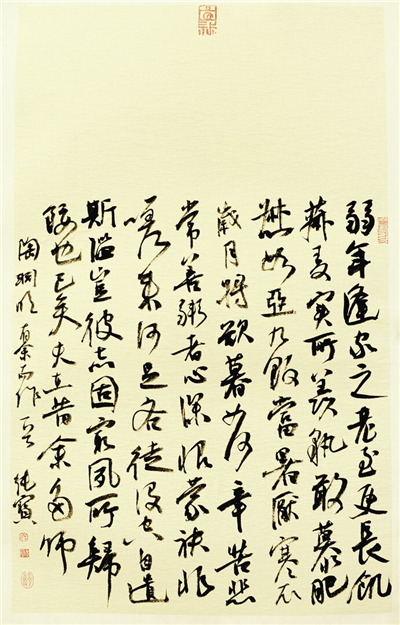 弱年逢家乏老至更長飢
菽麦实所羡孰敢慕甘肥
惄如亞九飯當暑厭寒衣
歲月將欲暮如何辛苦悲
常善粥者心深恨蒙袂非
嗟来何足吝徒没空自遺
斯濫豈彼志固窮夙所歸
餒也已矣夫在昔余多師
陶渊明 有會而作